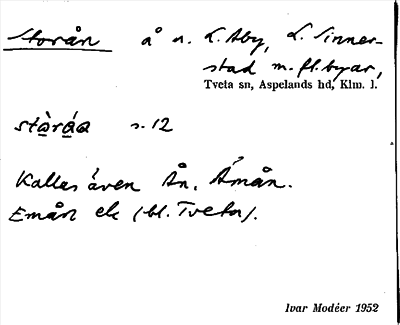 Storån å n. L. Åby, L. Sinner-
stad m.fl. byar,
Tveta sn, Aspelands hd, Klm. l.
stàråa s. 12
Kallas även Ån, Åmån.
Emån ek (bl. Tveta).
Ivar Modéer 1952